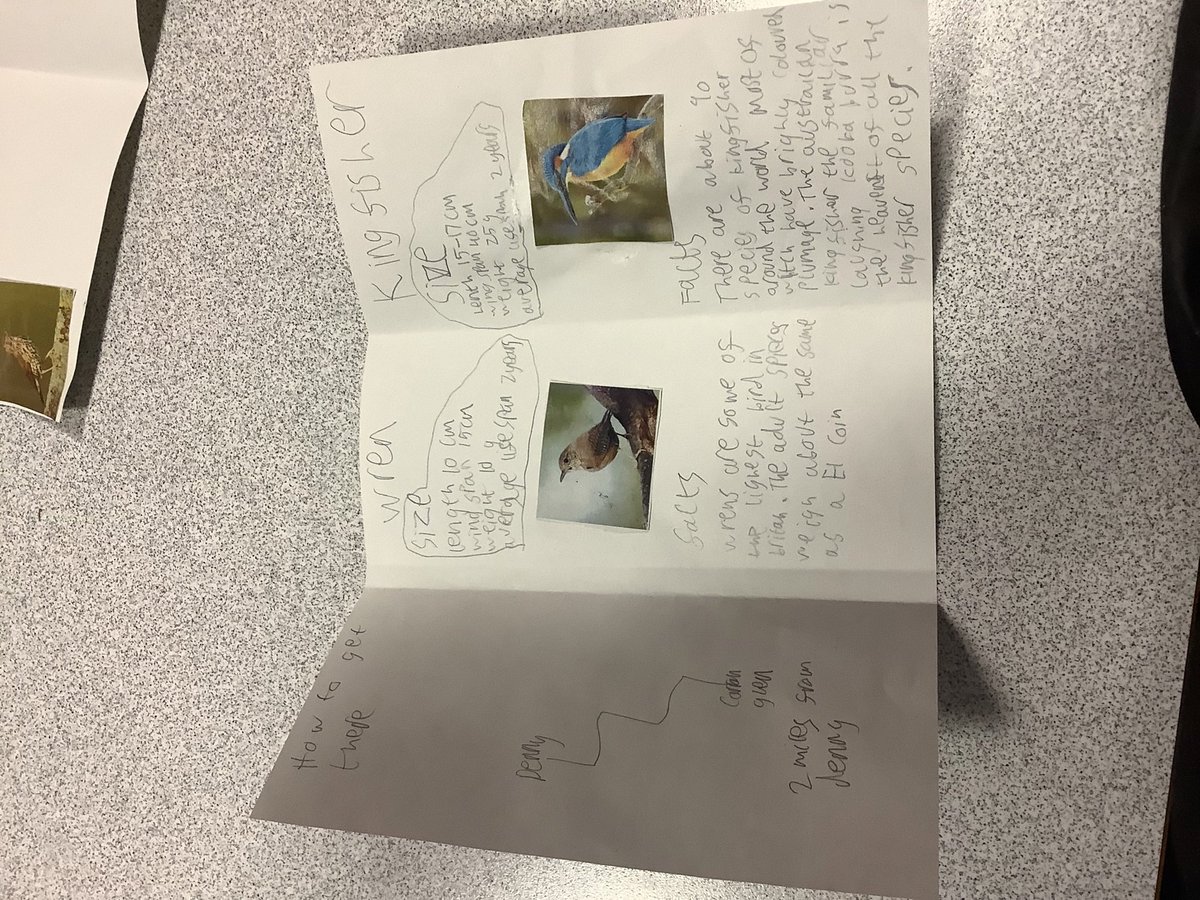 How to get
there
Denny
2 miles from
denny
wren
size
length 10 cm
wing span 15cm
weight 10 g
average life span 2 years
facts
wrens are some of
the lighest bird in
britan. The adult spices
weigh about the same
as a £1 coin
Kingfisher
size
Length 15-17cm
wing span 40 cm
weight 25 g
average lifespan 2 years
Facts
There are about 90
species of kingfisher
around the world most of
witch have brighly coloured
plumage. The australian
kingfisher the familiar
laughing kooba burra is
the heavest of all the
kingfisher species.